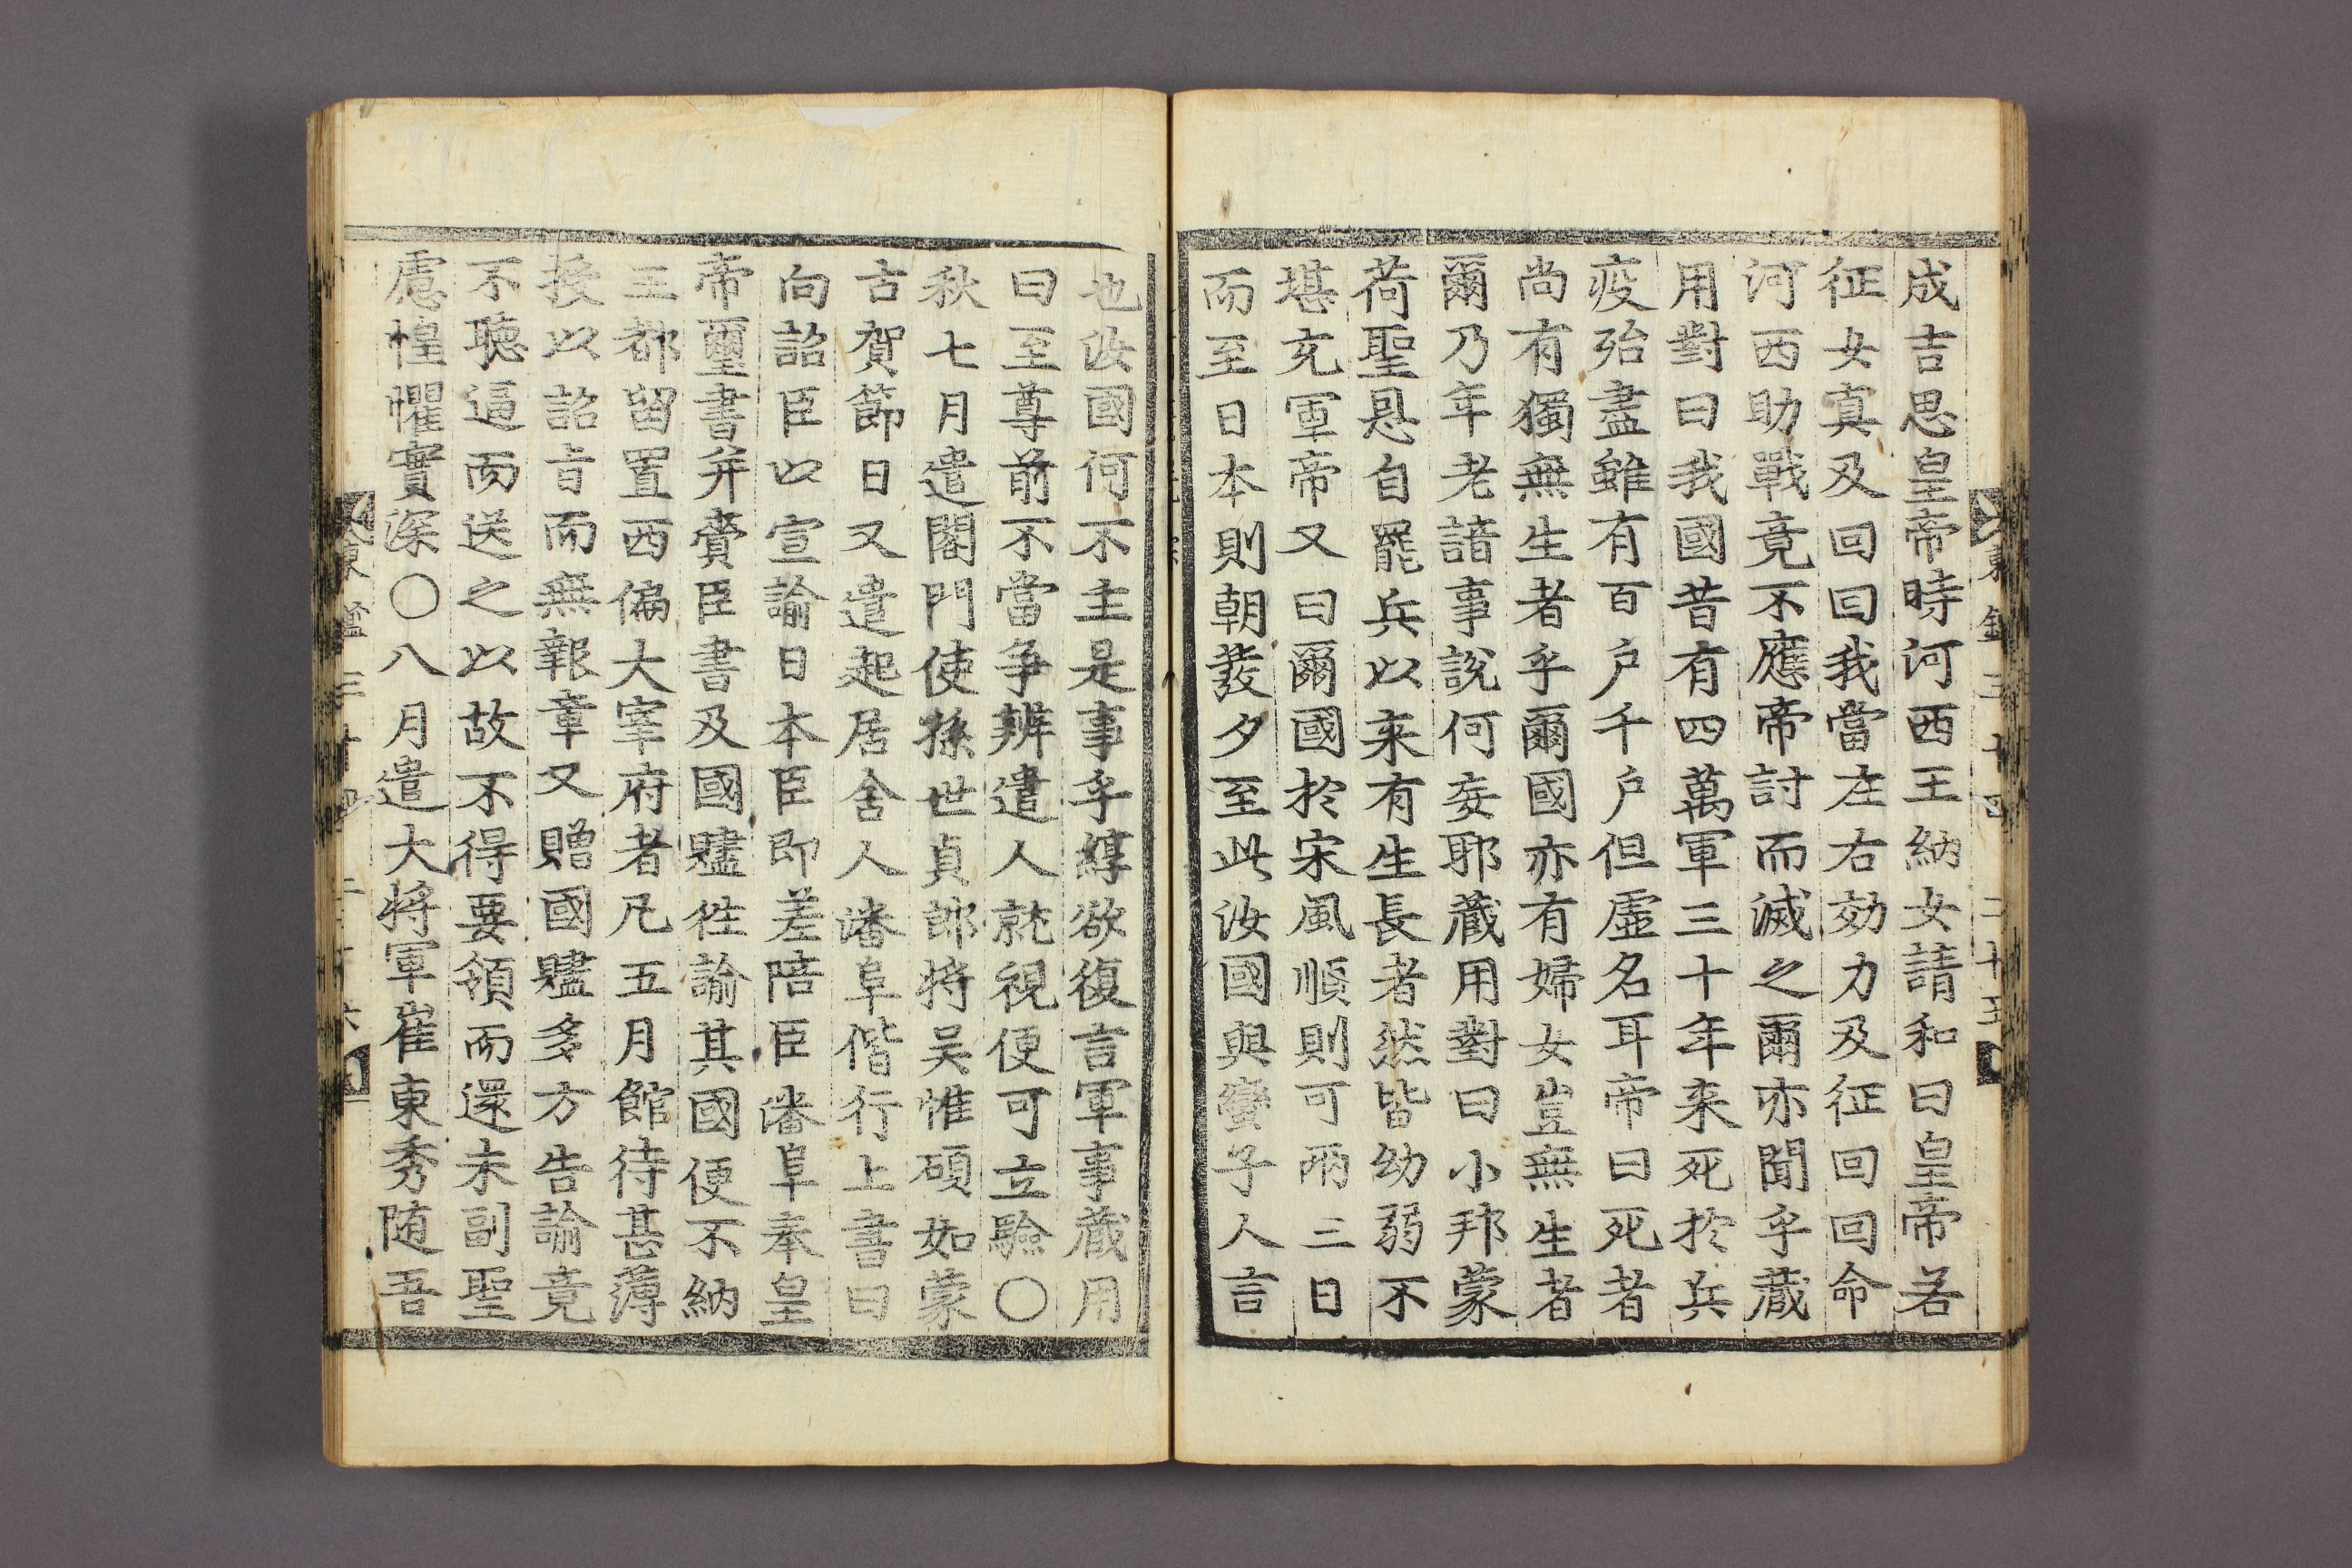 成吉思皇帝時河西王納女請和曰皇帝若
征女真及回回我當左右効力及征回回命
河西助戰竟不應帝討而滅之爾亦聞乎藏
用對曰我國昔有四萬軍三十年来死於兵
疫殆盡雖有百戶千戶但虛名耳帝曰死者
尚有獨無生者乎爾國亦有婦女豈無生者
爾乃年老諳事說何妄耶藏用對曰小邦蒙
荷聖恩自罷兵以来有生長者然皆幼弱不
堪充軍帝又曰爾國於宋風順則可兩三日
而至日本則朝發夕至此汝國與蠻子人言
也汝國何不主是事乎綧欲復言軍事藏用
曰至尊前不當爭辨遣人就視便可立驗〇
秋七月遣閤門使孫世貞郎将吴惟碩如蒙
古賀節日又遣起居舍人潘阜偕行上書曰
向詔臣以宣諭日本臣即差陪臣潘阜奉皇
帝璽書并賷臣書及國贐徃諭其國便不納
王都留置西偏大宰府者凡五月館待甚薄
授以詔旨而無報章又贈國贐多方告諭竟
不聽逼而送之以故不得要領而還未副聖
慮惶懼實深〇八月遣大将軍崔東秀随吾